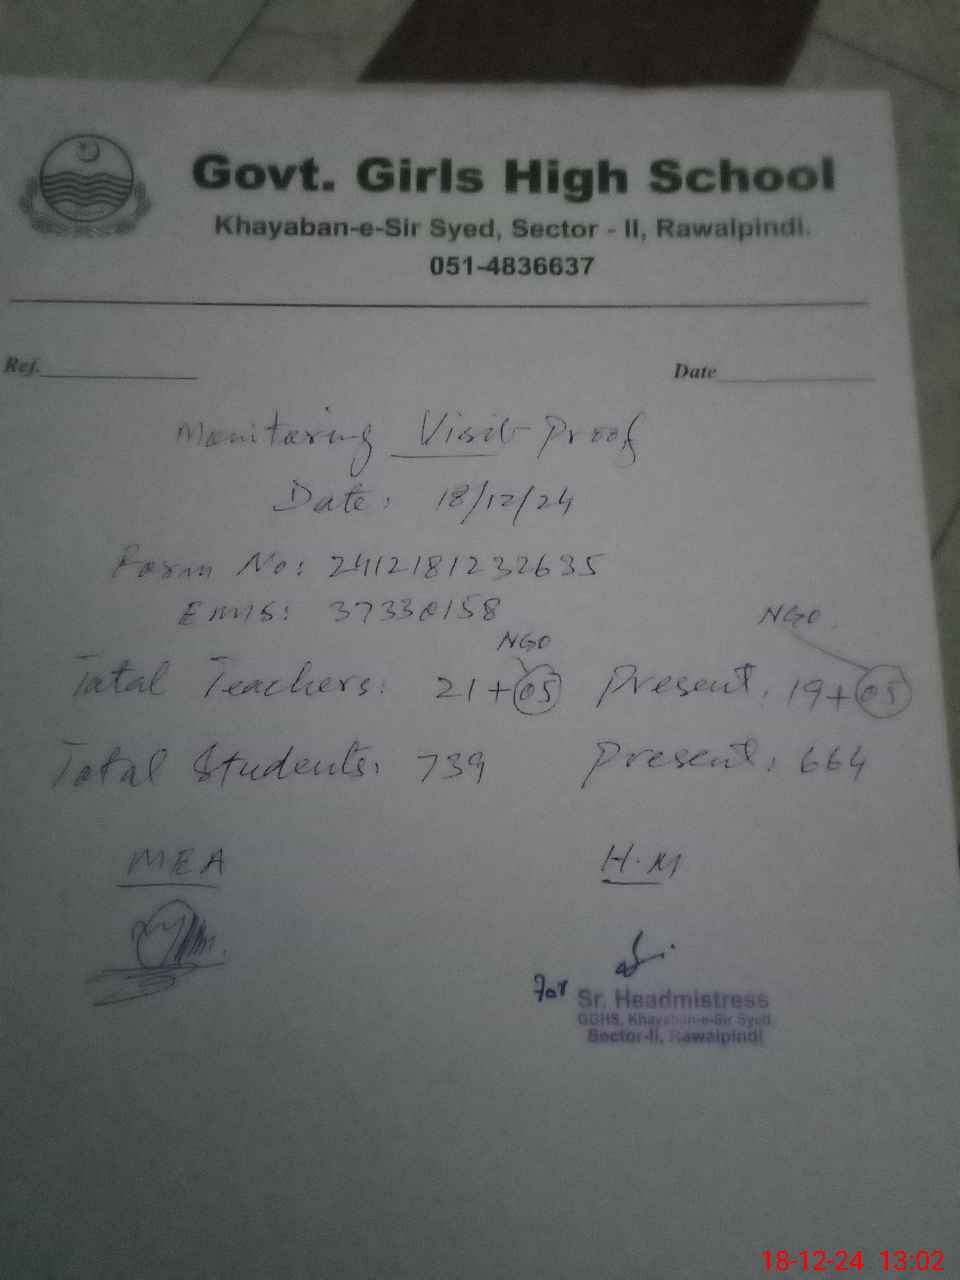 Govt. Girls High School
Khayaban-e-Sir Syed, Sector - II, Rawalpindi.
051-4836637
Ref. Date
Monitoring Visit Proof
Date: 18/12/24
Form No: 2412181232635
EMIS: 37330158
NGO NGO
Total Teachers: 21+05 Present: 19+05
Total Students: 739 Present: 664
MEA H.M
For Sr. Headmistress
GGHS, Khayaban-e-Sir Syed,
Sector-II, Rawalpindi
18-12-24 13:02